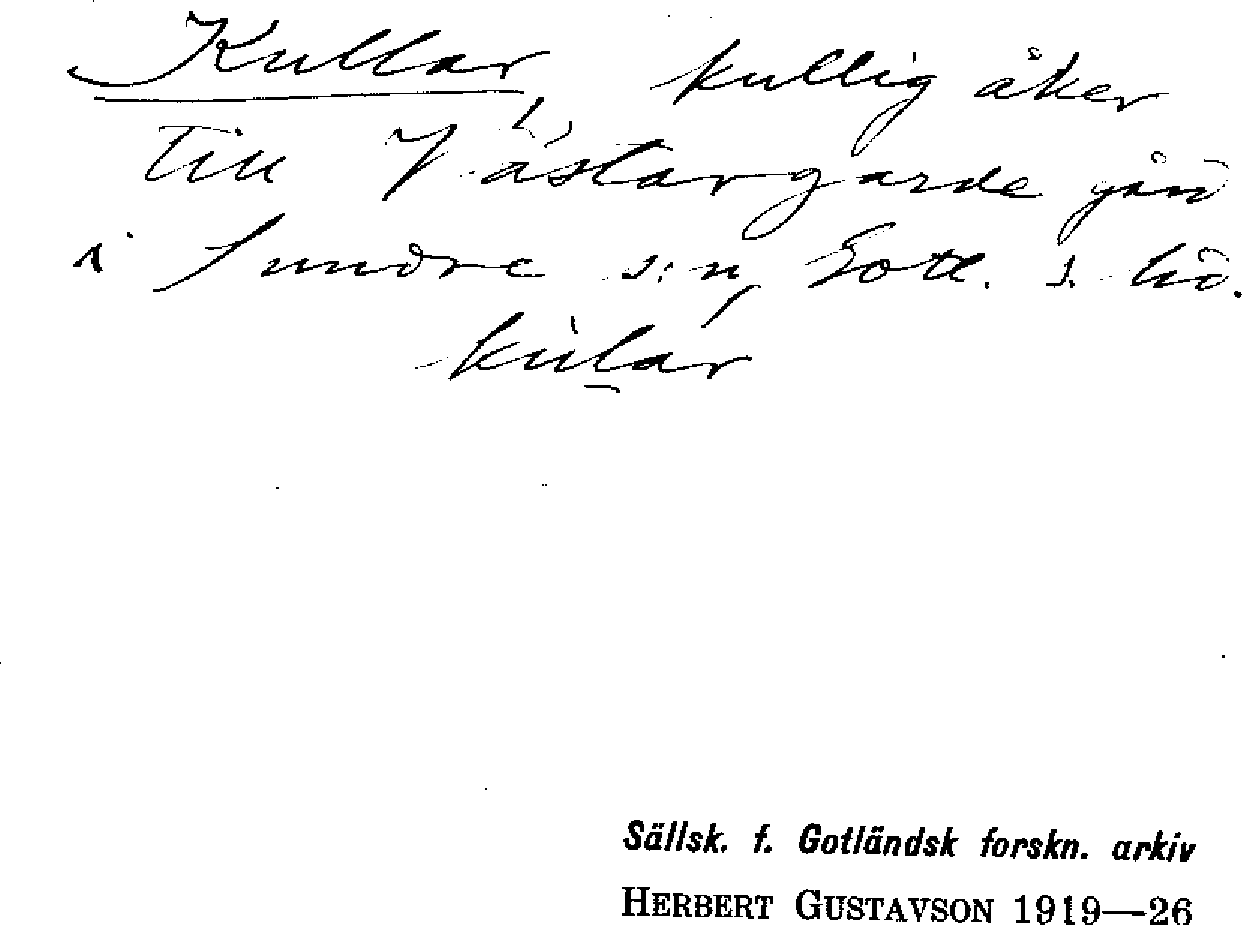 Kullar, kullig åker
till Västargarde gård
i Sundre s:n, Gotl. s. hd.
kular
Sällsk. f. Gotländsk forskn. arkiv
HERBERT GUSTAVSON 1919—26